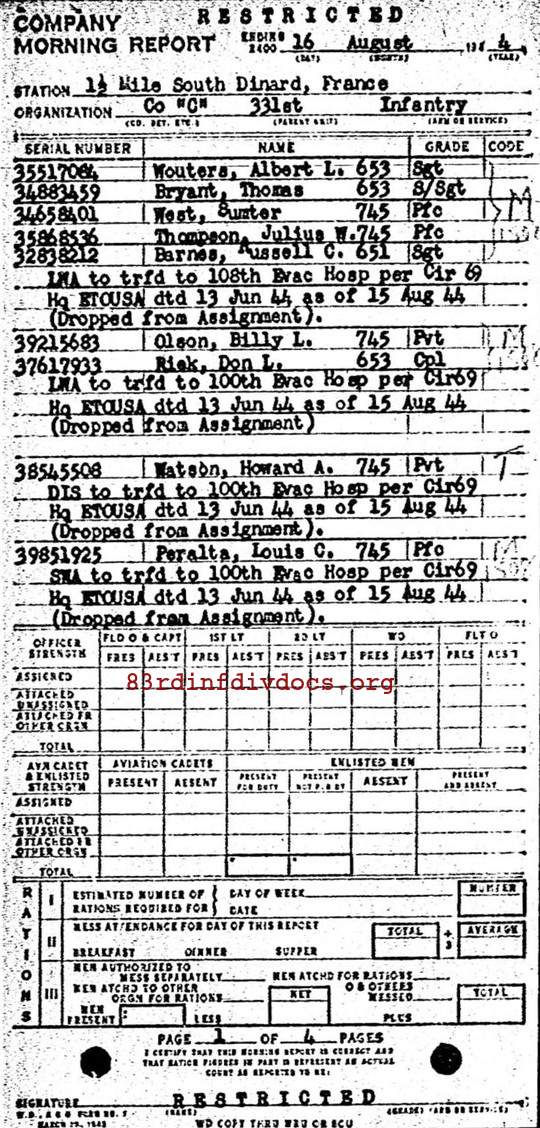 RESTRICTED
COMPANY
MORNING REPORT ENDING 2400 16 August 194 4
(DAY) (MONTH) (YEAR)
STATION 1½ Mile South Dinard, France
ORGANIZATION Co "C" 331st Infantry
(CO. DET. ETC.) (PARENT UNIT) (ARM OR SERVICE)
SERIAL NUMBER NAME GRADE CODE
35517084 Wouters, Albert L. 653 Sgt
34883459 Bryant, Thomas 653 S/Sgt
34658401 West, Sumter 745 Pfc M
35868536 Thompson, Julius W. 745 Pfc
32838212 Barnes, Russell C. 651 Sgt
LWA to trfd to 108th Evac Hosp per Cir 69
Hq ETOUSA dtd 13 Jun 44 as of 15 Aug 44
(Dropped from Assignment).
39215683 Olson, Billy L. 745 Pvt M
37617933 Riek, Don L. 653 Cpl
LWA to trfd to 100th Evac Hosp per Cir69
Hq ETOUSA dtd 13 Jun 44 as of 15 Aug 44
(Dropped from Assignment)
38545508 Watson, Howard A. 745 Pvt T
DIS to trfd to 100th Evac Hosp per Cir69
Hq ETOUSA dtd 13 Jun 44 as of 15 Aug 44
(Dropped from Assignment).
39851925 Peralta, Louis C. 745 Pfc M
SWA to trfd to 100th Evac Hosp per Cir69
Hq ETOUSA dtd 13 Jun 44 as of 15 Aug 44
(Dropped from Assignment).
OFFICER STRENGTH FLD O & CAPT 1ST LT 2D LT WO FLT O
PRES ABS'T PRES ABS'T PRES ABS'T PRES ABS'T PRES ABS'T
ASSIGNED
83rdinfdivdocs.org
ATTACHED UNASSIGNED
ATTACHED FR OTHER ORGN
TOTAL
AVN CADET & ENLISTED STRENGTH AVIATION CADETS ENLISTED MEN
PRESENT ABSENT PRESENT FOR DUTY PRESENT NOT F D BY ABSENT PRESENT AND ABSENT
ASSIGNED
ATTACHED UNASSIGNED
ATTACHED FR OTHER ORGN
TOTAL
RATIONS
I ESTIMATED NUMBER OF RATIONS REQUIRED FOR DAY OF WEEK NUMBER
DATE
II MESS ATTENDANCE FOR DAY OF THIS REPORT TOTAL ÷ 3 AVERAGE
BREAKFAST DINNER SUPPER
III MEN AUTHORIZED TO MESS SEPARATELY MEN ATCHD FOR RATIONS
MEN ATCHD TO OTHER ORGN FOR RATIONS NET O & OTHERS MESSED TOTAL
MEN PRESENT LESS PLUS
PAGE 1 OF 4 PAGES
I CERTIFY THAT THIS MORNING REPORT IS CORRECT AND
THAT RATION FIGURES IN PART III REPRESENT AN ACTUAL
COUNT AS REPORTED TO ME:
RESTRICTED
SIGNATURE
(NAME) (GRADE) (ARM OR SERVICE)
W.D., A G O FORM NO. 1
MARCH 29, 1943
WD COPY THRU MRU OR RCU